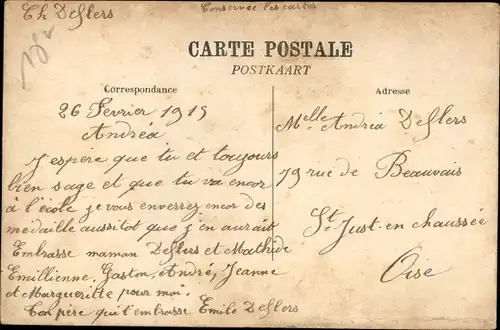 Th Deflers
Conservée les cartes
CARTE POSTALE
POSTKAART
Correspondance
Adresse
26 Fevrier 1915
Andréa
J'espere que tu et toujours
bien sage et que tu va encor
à l'école je vous enverrez encor des
medaille aussitot que j'en aurait
Embrasse maman Deflers et Mathide
Emillienne, Gaston, André, Jeanne
et Margueritte pour moi.
Ton père qui t'embrasse Emile Deflers
Melle Andréa Deflers
79 rue de Beauvais
St Just en chaussée
Oise